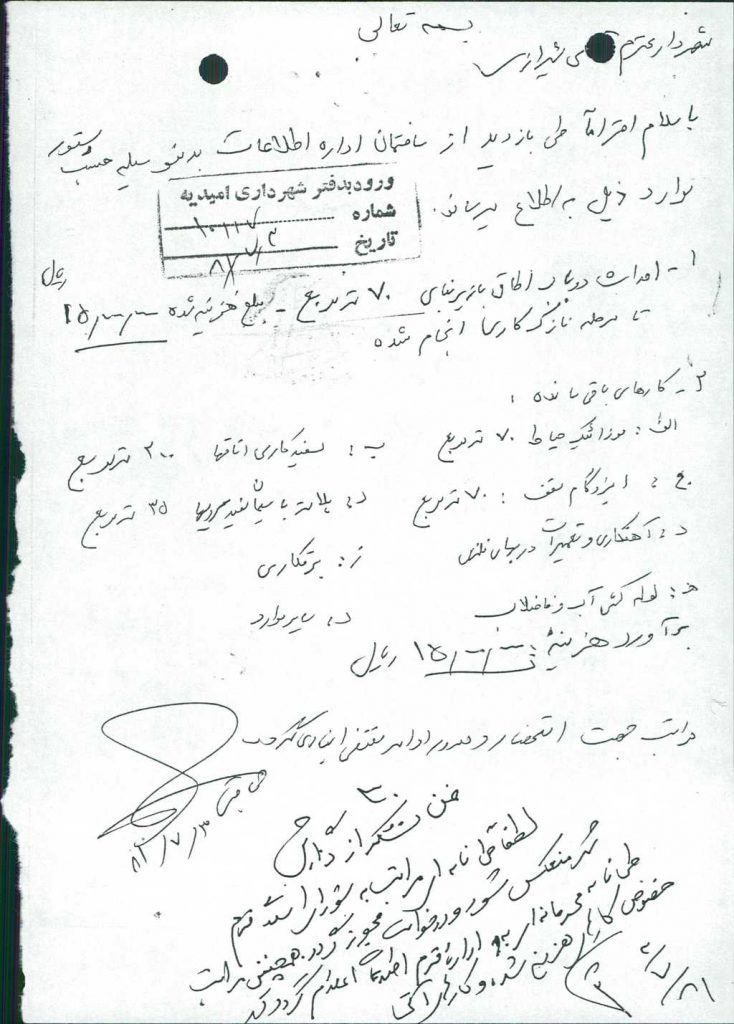 بسمه تعالی
شهردار محترم آقای شیرازی
با سلام احتراماً طی بازدید از ساختمان اداره اطلاعات بدینوسیله حسب دستور
موارد ذیل به اطلاع میرساند.
ورود بدفتر شهرداری امیدیه
شماره ۱۰۱۱۷
تاریخ
۱- احداث دو باب اطاق با زیربنای ۷۰ مترمربع - مبلغ هزینه شده ۱۵/۰۰۰/۰۰۰ ریال
تا مرحله نازک کاری انجام شده
۲- کارهای باقی مانده :
الف: موزائیک حیاط ۷۰ مترمربع ب: سفیدکاری اتاقها ۲۰۰ مترمربع
ج: ایزوگام سقف : ۷۰ مترمربع د: پلاستر با سیمان سفید ۳۵ مترمربع
د: آهنکاری و تعمیرات دربهای فلزی ز: برقکاری
هـ: لوله کشی آب و فاضلاب د: سایر موارد
برآورد هزینه: ۱۵/۰۰۰/۰۰۰ ریال
مراتب جهت استحضار و صدور اوامر مقتضی ایفاد می‌گردد
۸۲/۷/۳
ضمن تشکر از گزارش
لطفاً طی نامه ای مراتب به شورای اسلامی محترم
شهر منعکس شود و درخواست مجوز گردد. همچنین مراتب
طی نامه محرمانه ای به اداره محترم اطلاعات اعلام گردد که
خصوص کارهای هزینه شده و کارهای آتی